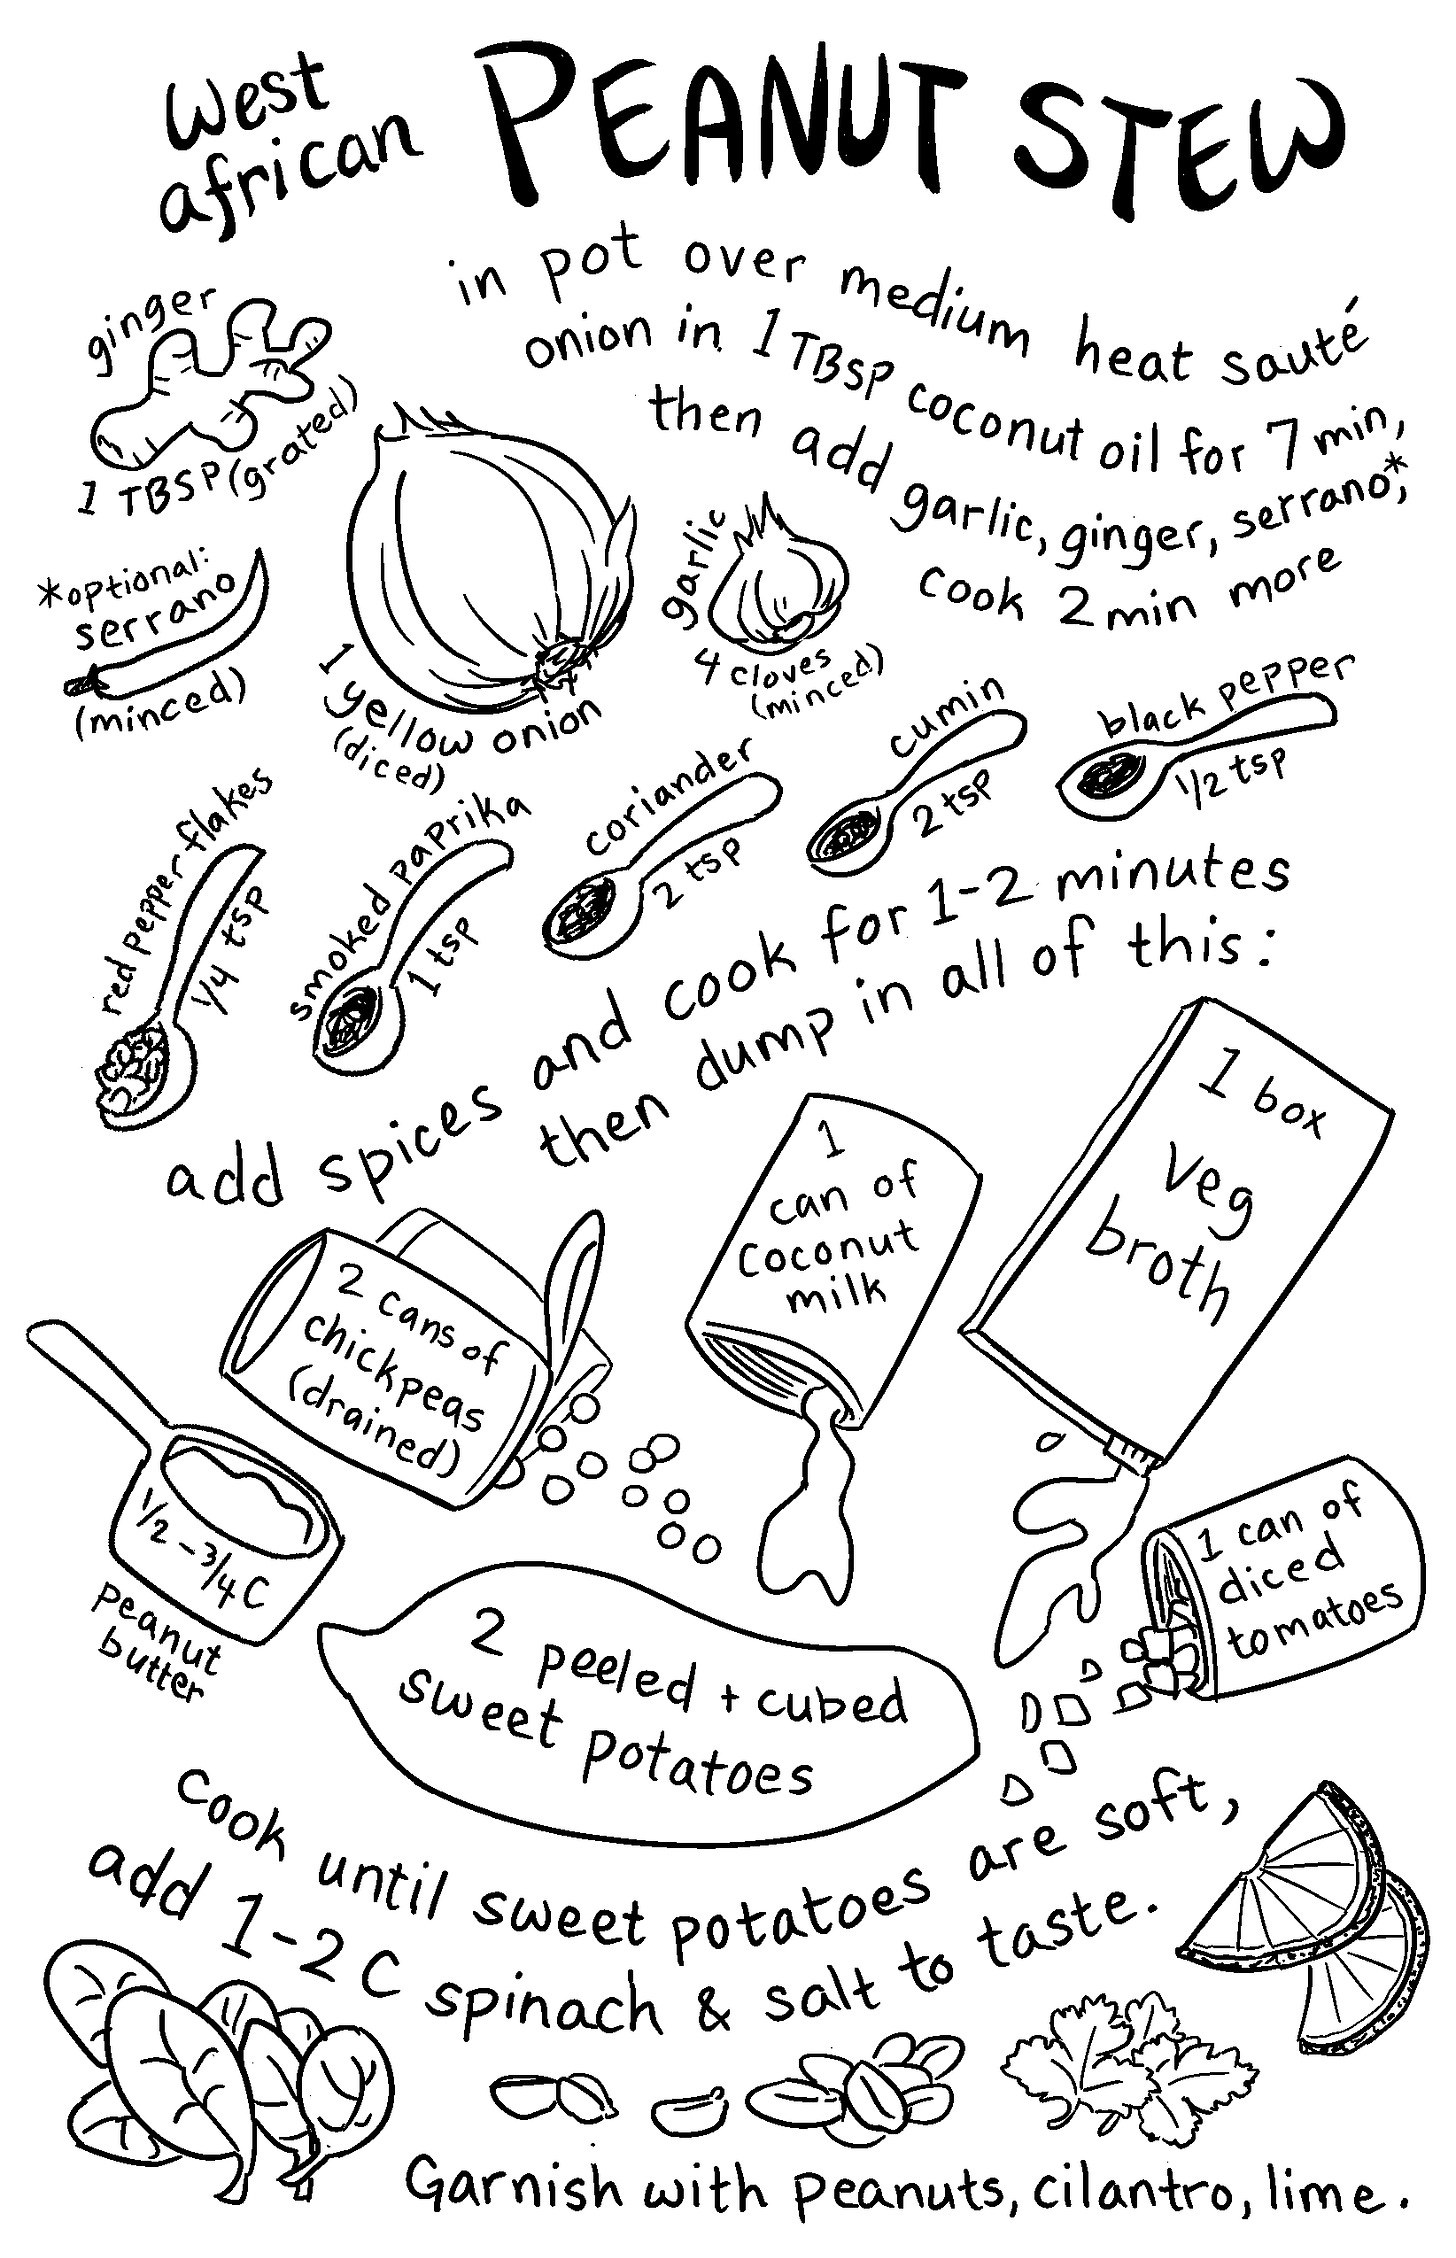 West
african
PEANUT STEW
in pot over medium heat sauté
onion in 1 TBSP coconut oil for 7 min,
then add garlic, ginger, serrano*,
cook 2 min more
ginger
1 TBSP (grated)
*optional:
serrano
(minced)
1 yellow onion
(diced)
garlic
4 cloves
(minced)
red pepper flakes
1/4 tsp
smoked paprika
1 tsp
coriander
2 tsp
cumin
2 tsp
black pepper
1/2 tsp
add spices and cook for 1-2 minutes
then dump in all of this:
1/2 - 3/4 C
peanut
butter
2 cans of
chickpeas
(drained)
1
can of
coconut
milk
1 box
veg
broth
1 can of
diced
tomatoes
2 peeled + cubed
sweet potatoes
cook until sweet potatoes are soft,
add 1-2 C spinach & salt to taste.
Garnish with peanuts, cilantro, lime.